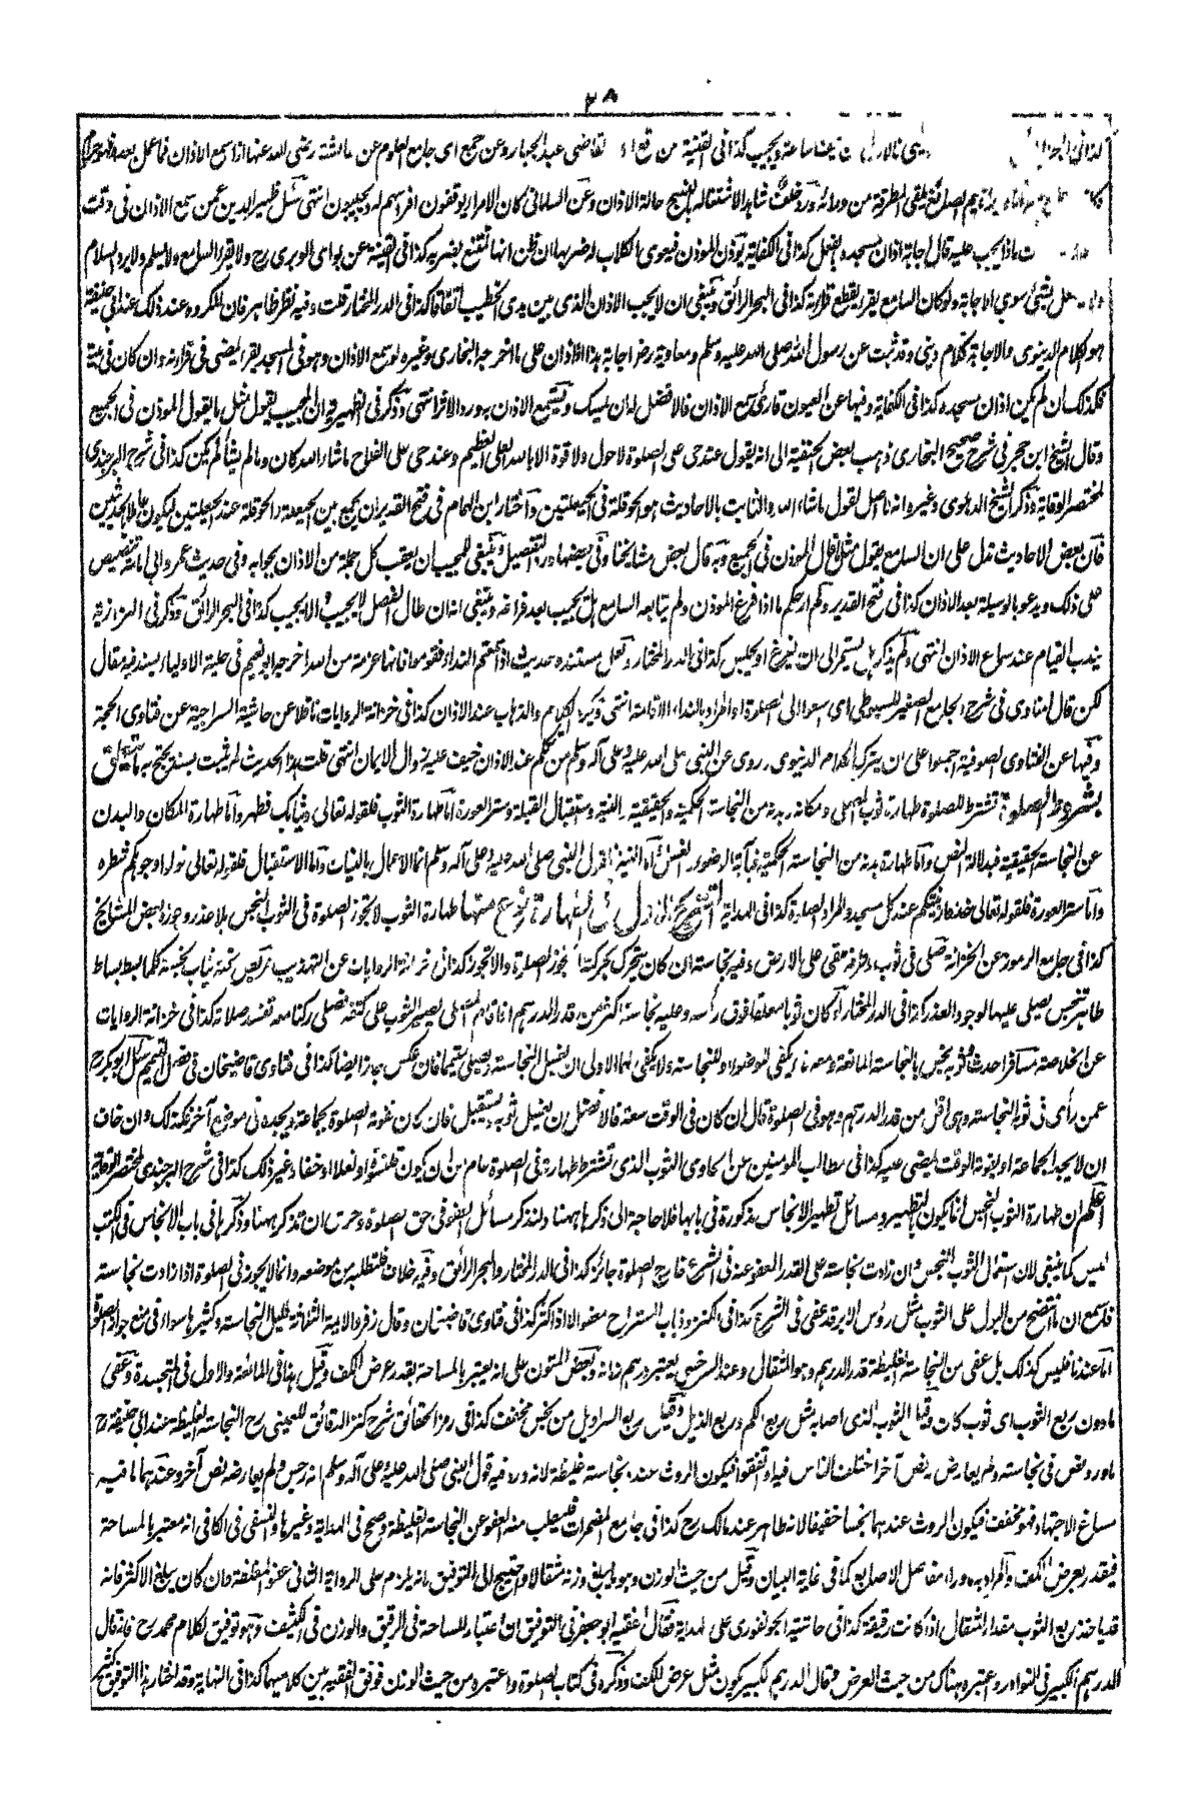 ٢٨
كذا فى القنية عن قع القاضى عبد الجبار وعن جمع اى جامع العلوم عن عائشة رضى الله عنها اذا سمع الاذان فما عمل بعده فهو حرام
حالة الاذان وعن السلمانى كان الامراء يوقفون افراسهم له ويجيبون انتهى سئل ظهير الدين عمن سمع الاذان فى وقت
ماذا يجب عليه قال اجابة اذان مسجده بالفعل كذا فى الكفاية يؤذن المؤذن فيعوى الكلاب له ضربها ان ظن انها تمتنع بضربه كذا فى القنية عن بو اى الوبرى رح ولا يقرأ السامع ولا يسلم ولا يرد السلام
بشئ سوى الاجابة ولو كان السامع يقرأ يقطع قراءته كذا فى البحر الرائق وينبغى ان لا يجب الاذان الذى بين يدى الخطيب اتفاقا كذا فى الدر المختار قلت وفيه نظر ظاهر فان المكروه عند ذلك عند ابى حنيفة
هو الكلام الدنيوى والاجابة كلام دينى وقد ثبت عن رسول الله صلى الله عليه وسلم ومعاوية رض اجابة هذا الاذان على ما اخرجه البخارى وغيره لو سمع الاذان وهو فى المسجد يقرأ يمضى فى قراءته وان كان فى بيته
فكذلك ان لم يكن اذان مسجده كذا فى الكفاية وفيها عن العيون قارئ سمع الاذان فالافضل له ان يمسك ويستمع الاذان به ورد الاثر انتهى وذكر فى الظهيرية ان المجيب يقول مثل ما يقول المؤذن فى الجميع
وقال الشيخ ابن حجر فى شرح صحيح البخارى ذهب بعض الحنفية الى انه يقول عند حى على الصلوة لا حول ولا قوة الا بالله العلى العظيم وعند حى على الفلاح ما شاء الله كان وما لم يشأ لم يكن كذا فى شرح البرجندى
لمختصر الوقاية وذكر الشيخ الدهلوى وغيره انه لا اصل لقول ما شاء الله والثابت بالاحاديث هو الحوقلة فى الحيعلتين واختار ابن الهمام فى فتح القدير ان يجمع بين الحيعلة والحوقلة عند الحيعلتين ليكون عاملا بالحديثين
فان بعض الاحاديث تدل على ان السامع يقول مثل ما قال المؤذن فى الجميع وبه قال بعض مشايخنا وفى بعضها ورد التفصيل وينبغى للمجيب ان يعقب كل جملة من الاذان بجوابه وفى حديث عمر وابى امامة تنصيص
على ذلك ويدعو بالوسيلة بعد الاذان كذا فى فتح القدير ولم ار حكم ما اذا فرغ المؤذن ولم يتابعه السامع هل يجيب بعد فراغه وينبغى انه ان طال الفصل لا يجيب والا يجيب كذا فى البحر الرائق وذكر فى البزازية
يندب القيام عند سماع الاذان انتهى ولم يذكر هل يستمر الى ان يفرغ او يجلس كذا فى الدر المختار ولعل مستنده حديث اذا سمعتم النداء فقوموا فانها عزمة من الله اخرجه ابو نعيم فى حلية الاولياء بسند فيه مقال
لكن قال المناوى فى شرح الجامع الصغير للسيوطى اى اسعوا الى الصلوة او المراد بالنداء الاقامة انتهى ويكره الكلام والذهاب عند الاذان كذا فى خزانة الروايات ناقلا عن حاشية السراجية عن فتاوى الحجة
وفيها عن الفتاوى الصوفية اجمعوا على ان يترك الكلام الدنيوى روى عن النبى صلى الله عليه وعلى آله وسلم من تكلم عند الاذان خيف عليه زوال الايمان انتهى قلت هذا الحديث لم يثبت بسند يحتج به ما يتعلق
بشروط الصلوة تشترط للصلوة طهارة ثوب المصلى ومكانه وبدنه من النجاسة الحكمية والحقيقية والنية واستقبال القبلة وستر العورة اما طهارة الثوب فلقوله تعالى وثيابك فطهر واما طهارة المكان والبدن
عن النجاسة الحقيقية فبدلالة النص واما طهارة بدنه من النجاسة الحكمية فبآية الوضوء والغسل واما النية فلقول النبى صلى الله عليه وعلى آله وسلم انما الاعمال بالنيات واما الاستقبال فلقوله تعالى فولوا وجوهكم شطره
واما ستر العورة فلقوله تعالى خذوا زينتكم عند كل مسجد والمراد الصلوة كذا فى الهداية طهارة الثوب لا تجوز الصلوة فى الثوب النجس بلا عذر وجوزه بعض المشايخ
كذا فى جامع الرموز عن الخزانة صلى فى ثوب وطرفه ملقى على الارض وفيه نجاسة ان كان يتحرك بحركته لم تجز الصلوة والا تجوز كذا فى خزانة الروايات عن التهذيب مريض تحته ثياب نجسة كلما بسط بساط
طاهر تنجس يصلى عليها لوجود العذر كذا فى الدر المختار لو كان ثوبا معلقا فوق رأسه وعليه نجاسة اكثر من قدر الدرهم اذا قام المصلى يصير الثوب على كتفه فصلى ركنا معه تفسد صلاته كذا فى خزانة الروايات
عن الخلاصة مسافر احدث وثوبه نجس بالنجاسة المانعة ومعه ماء يكفى للوضوء او للنجاسة ولا يكفى لهما الاولى ان يغسل النجاسة ويصلى بتيمم فان عكس جاز ايضا كذا فى فتاوى قاضيخان فى فصل التيمم سئل ابو بكر رح
عمن رأى فى ثوبه النجاسة وهى اقل من قدر الدرهم وهو فى الصلوة قال ان كان فى الوقت سعة فالافضل ان يغسل ثوبه ويستقبل فان كان تفوته الصلوة بجماعة ويجده فى موضع آخر فكذلك وان خاف
ان لا يجد الجماعة او يفوته الوقت يمضى عليه كذا فى مطالب المؤمنين عن الحاوى الثوب الذى تشترط طهارته فى الصلوة عام من ان يكون قلنسوة او نعلا او خفا وغير ذلك كذا فى شرح البرجندى لمختصر الوقاية
اعلم ان طهارة الثوب النجس انما يكون بالتطهير ومسائل تطهير الانجاس مذكورة فى بابها فلا حاجة الى ذكرها ههنا ولنذكر مسائل العفو فى حق الصلوة وحرى ان تذكر ههنا وذكرها فى باب الانجاس فى الكتب
ليس كما ينبغى لان استعمال الثوب النجس وان زادت نجاسته على القدر المعفو عنه فى الشرع خارج الصلوة جائز كذا فى الدر المختار والبحر الرائق وفيه خلاف فلتطلبه من موضعه وانما لا يجوز فى الصلوة اذا زادت نجاسته
فاسمع ان ما انتضح من البول على الثوب مثل رؤس الابر قد عفى فى الشرع كذا فى الكنز وذباب المستراح معفو الا اذا كثر كذا فى فتاوى قاضيخان وقال زفر والائمة الثلاثة قليل النجاسة وكثيرها سواء فى منع جواز الصلوة
اما عندنا فليس كذلك بل عفى من النجاسة الغليظة قدر الدرهم وهو المثقال وعند السرخسى يعتبر درهم زمانه وبعض المتون على انه يعتبر بالمساحة بقدر عرض الكف وقيل هذا فى المائعة والاول فى المتجسدة وعفى
ما دون ربع الثوب اى ثوب كان وقيل الثوب الذى اصابه مثل ربع الكم وربع الذيل وقيل ربع السراويل من نجس مخفف كذا فى رمز الحقائق شرح كنز الدقائق للعينى رح النجاسة الغليظة عند ابى حنيفة رح
ما ورد نص فى نجاسته ولم يعارض بنص آخر اختلف الناس فيه او اتفقوا فيكون الروث عنده نجاسة غليظة لانه ورد فيه قول النبى صلى الله عليه وعلى آله وسلم انه رجس ولم يعارضه نص آخر وعندهما ما فيه
مساغ الاجتهاد فهو مخفف فيكون الروث عندهما نجسا خفيفا لانه طاهر عند مالك رح كذا فى جامع المضمرات فليطلب منه العفو عن النجاسة الغليظة وصحح فى الهداية وغيرها والنسفى فى الكافى انه معتبر بالمساحة
فيقدر بعرض الكف والمراد به ما وراء مفاصل الاصابع كما فى غاية البيان وقيل من حيث الوزن وهو ما يبلغ وزنه مثقالا واحتيج الى التوفيق بانه يلزم على الرواية الثانى عفو المغلظة وان كان يبلغ الاكثر فانه
قد ياخذ ربع الثوب مقدار المثقال اذا كانت رقيقة كذا فى حاشية الجونفورى على الهداية فقال الفقيه ابو جعفر فى التوفيق ان اعتبار المساحة فى الرقيق والوزن فى الكثيف وهو توفيق لكلام محمد رح فانه قال
الدرهم الكبير فى النوادر واعتبره هناك من حيث العرض وقال الدرهم الكبير يكون مثل عرض الكف وذكره فى كتاب الصلوة واعتبره من حيث الوزن فوفق الفقيه بين كلاميهما كذا فى النهاية وقد اختار هذا التوفيق كثير